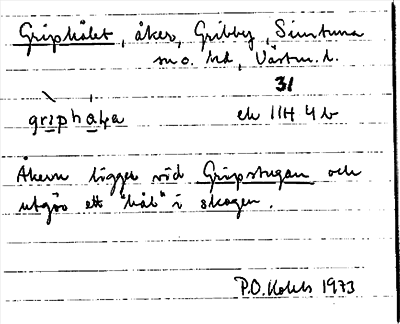 Griphålet, åker, Gribby, Simtuna
sn o. hd, Västm. l.
31
griphåɫa ek 11H 4 b
Åkern ligger vid Gripstugan och
utgör ett "hål" i skogen.
P.O. 1973